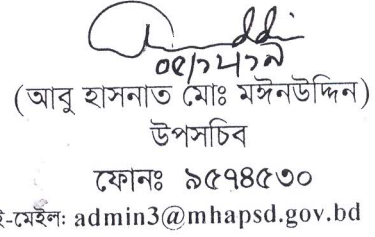 (আবু হাসনাত মোঃ মঈনউদ্দিন)
উপসচিব
ফোনঃ ৯৫৭৪৫৩০
ই-মেইলঃ admin3@mhapsd.gov.bd